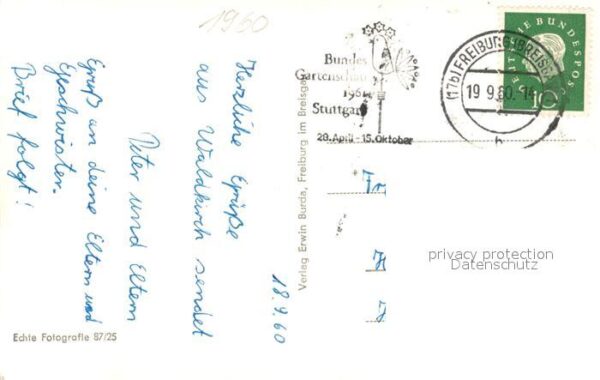 1960
Bundes
Gartenschau
1961
Stuttgart
28. April - 15. Oktober
(17b) FREIBURG (BREISGAU)
19.9.60.-14
h
DEUTSCHE BUNDESPOST
10
18.9.60
Herzliche Grüße
aus Waldkirch sendet
Peter und Eltern
Gruß an deine Eltern und
Geschwister.
Brief folgt!
Verlag Erwin Burda, Freiburg im Breisgau
Echte Fotografie 87/25
privacy protection
Datenschutz